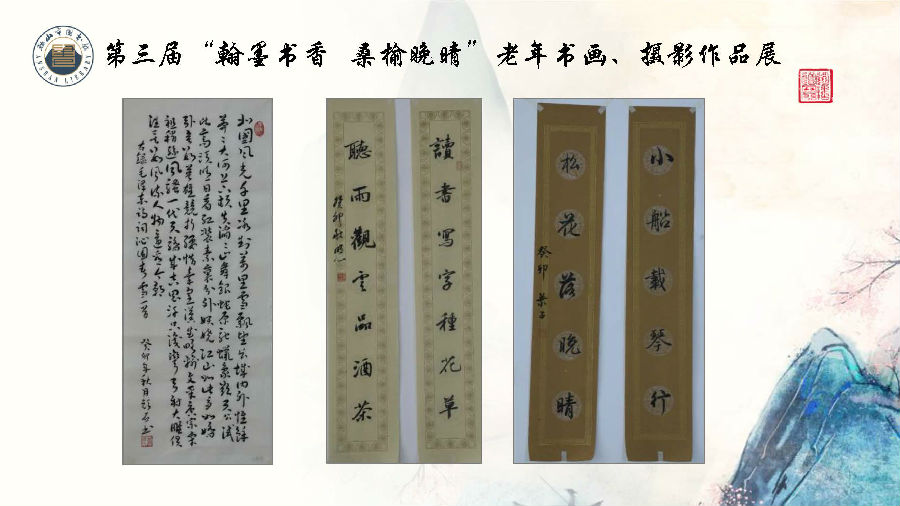 第三届“翰墨书香 桑榆晚晴”老年书画、摄影作品展
北国风光千里冰封万里雪飘望长城内外惟余
莽莽大河上下顿失滔滔山舞银蛇原驰蜡象欲与天公试
比高须晴日看红装素裹分外妖娆江山如此多娇
引无数英雄竞折腰惜秦皇汉武略输文采唐宗宋
祖稍逊风骚一代天骄成吉思汗只识弯弓射大雕俱
往矣数风流人物还看今朝
癸卯年秋月
讀書寫字種花草
聽雨觀雲品酒茶
癸卯
小船載琴行
松花落晚晴
癸卯 葉子